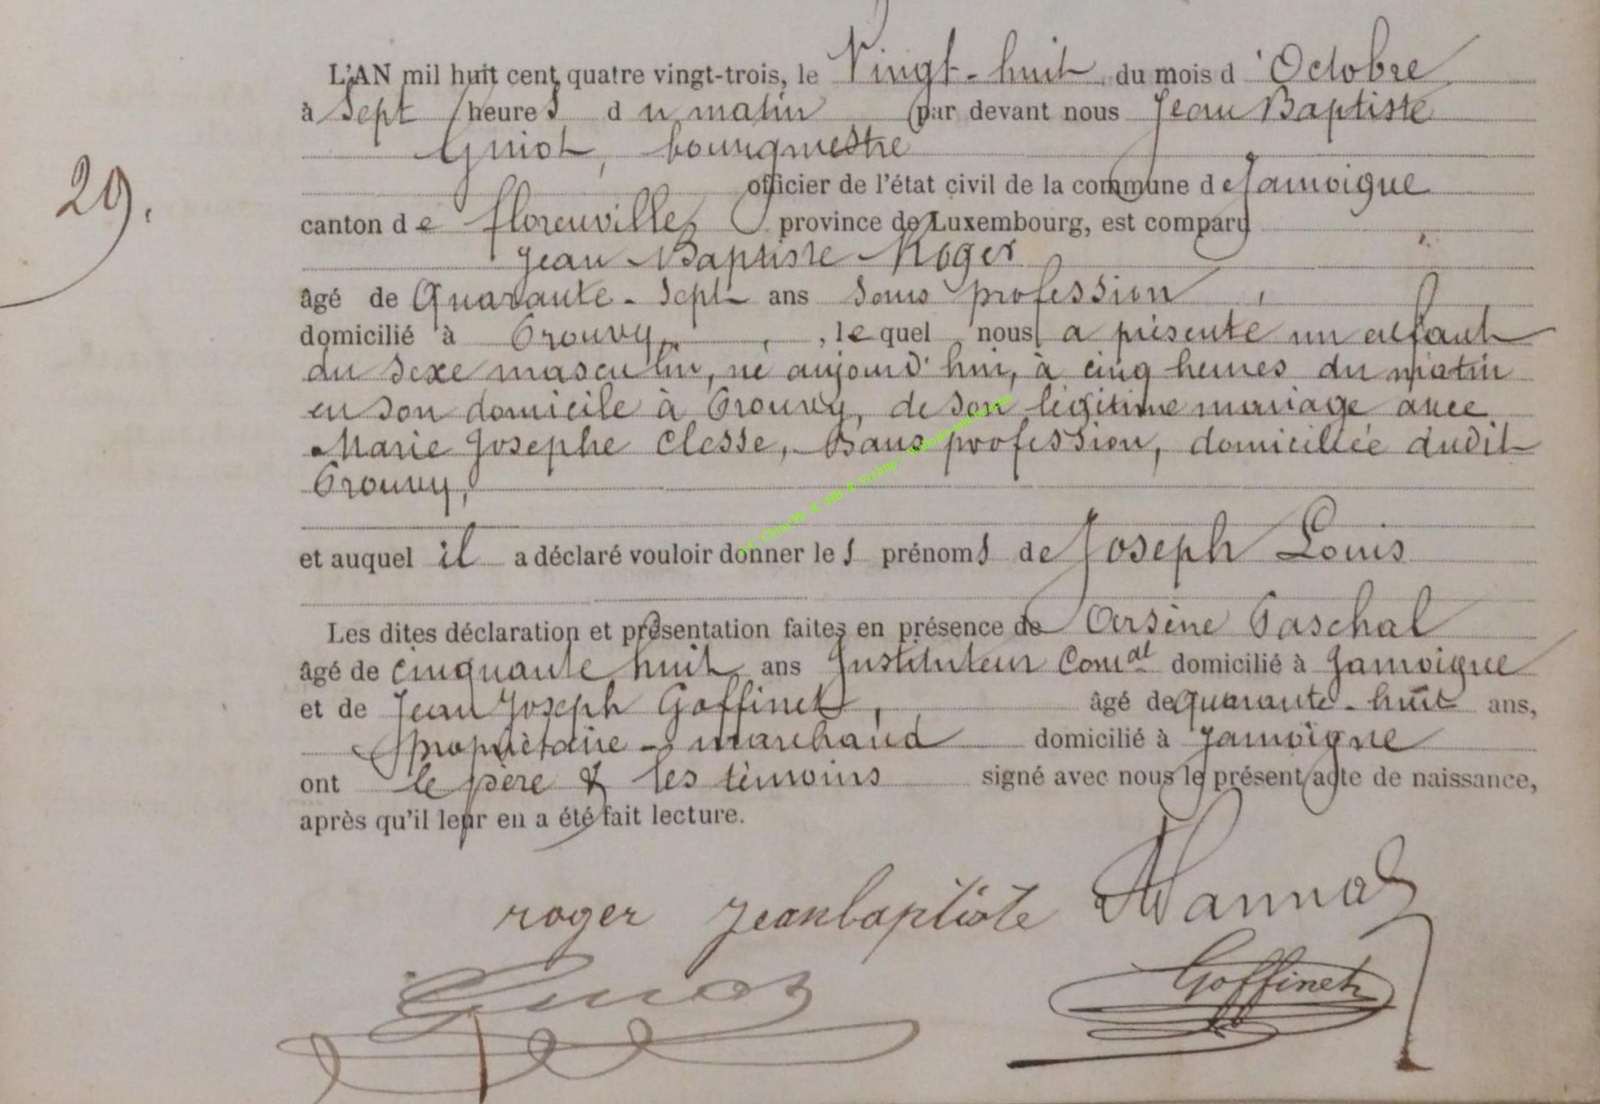 L'AN mil huit cent quatre vingt-trois, le Vingt-huit du mois d'Octobre
à Sept heures du matin par devant nous Jean Baptiste
Guiot, bourgmestre
officier de l'état civil de la commune de Jamoigne
29.
canton de florenville province de Luxembourg, est comparu
Jean Baptiste Roger
âgé de Quarante-Sept ans Sans profession,
domicilié à Prouvy, , lequel nous a présenté un enfant
du Sexe masculin, né aujourd'hui, à cinq heures du matin
en Son domicile à Prouvy, de Son légitime mariage avec
Marie Josephe Clesse, Sans profession, domiciliée audit
Prouvy,
et auquel il a déclaré vouloir donner les prénoms de Joseph Louis
Les dites déclaration et présentation faites en présence de Arsène Paschal
âgé de cinquante huit ans Instituteur Comal domicilié à Jamoigne
et de Jean Joseph Goffinet, âgé de quarante-huit ans,
propriètaire-marchand domicilié à Jamoigne
ont le père & les témoins signé avec nous le présent acte de naissance,
après qu'il leur en a été fait lecture.
roger jeanbaptiste
Guiot Goffinet